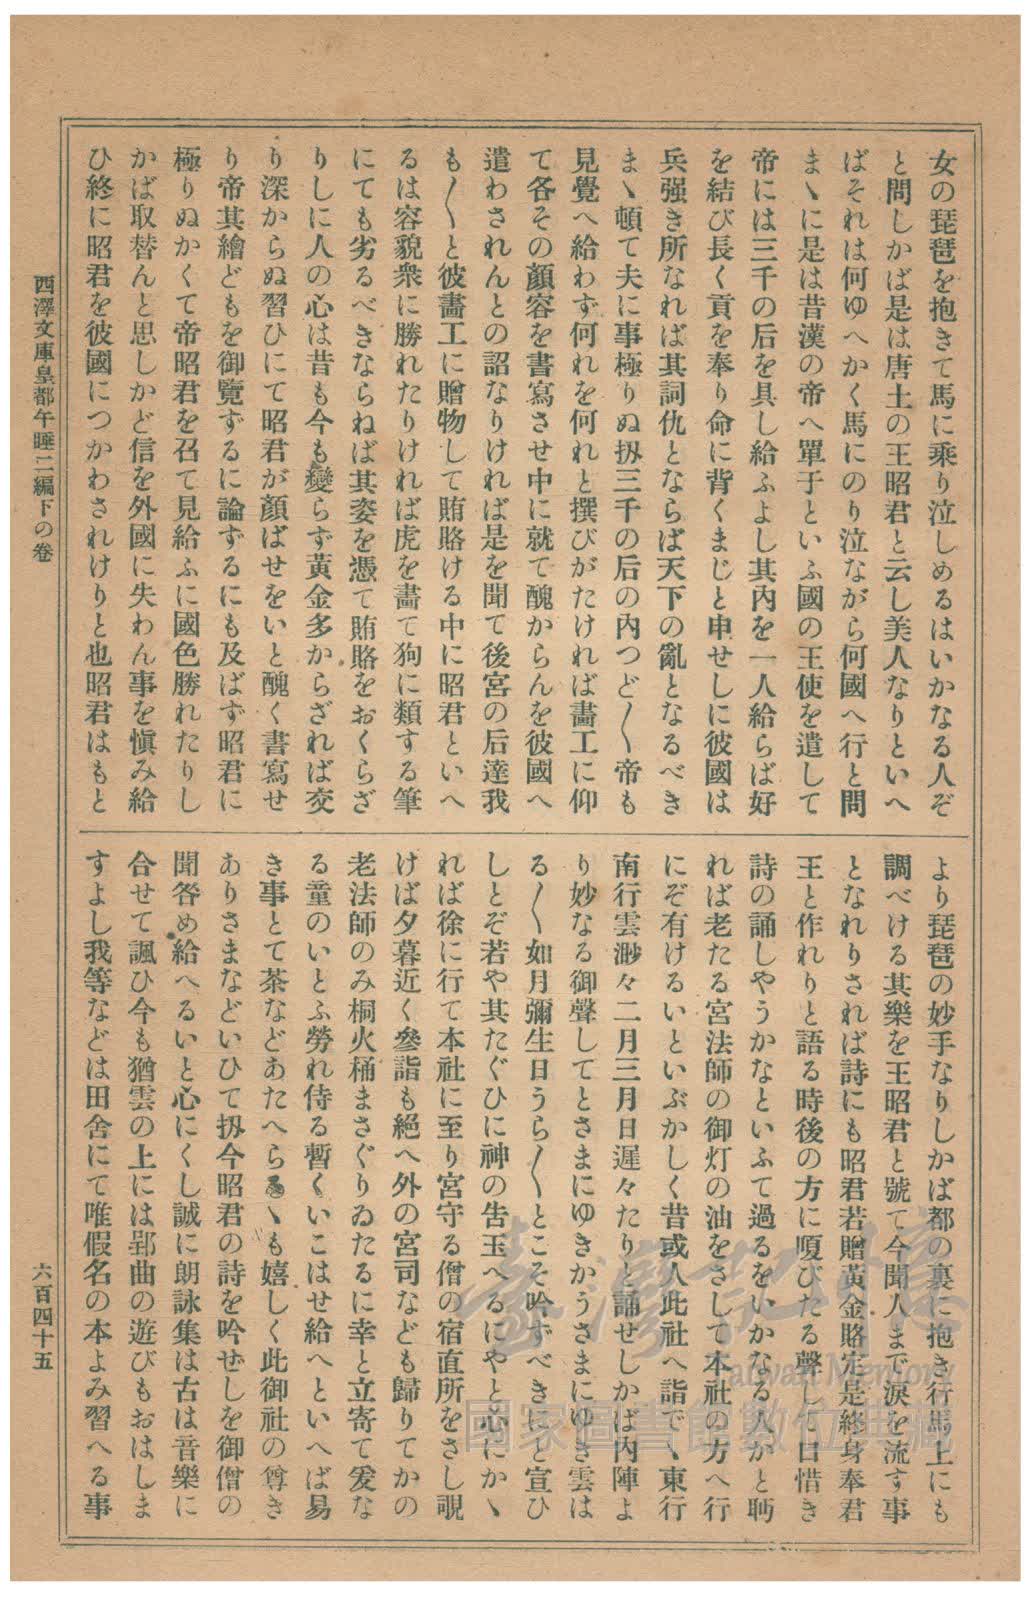 女の琵琶を抱きて馬に乘り泣しめるはいかなる人ぞ
と問しかば是は唐土の王昭君と云し美人なりといへ
ばそれは何ゆへかく馬にのり泣ながら何國へ行と問
まゝに是は昔漢の帝へ單于といふ國の王使を遣して
帝には三千の后を具し給ふよし其內を一人給らば好
を結び長く貢を奉り命に背くまじと申せしに彼國は
兵强き所なれば其詞仇とならば天下の亂となるべき
まゝ頓て夫に事極りぬ扨三千の后の內つど〳〵帝も
見覺へ給わず何れを何れと撰びがたければ畵工に仰
て各その顏容を書寫させ中に就て醜からんを彼國へ
遣わされんとの詔なりければ是を聞て後宮の后達我
も〳〵と彼畵工に贈物して賄賂ける中に昭君といへ
るは容貌衆に勝れたりければ虎を畵て狗に類する筆
にても劣るべきならねば其姿を憑て賄賂をおくらざ
りしに人の心は昔も今も變らず黃金多からざれば交
り深からぬ習ひにて昭君が顏ばせをいと醜く書寫せ
り帝其繪どもを御覽ずるに論ずるにも及ばず昭君に
極りぬかくて帝昭君を召て見給ふに國色勝れたりし
かば取替んと思しかど信を外國に失わん事を愼み給
ひ終に昭君を彼國につかわされけりと也昭君はもと
より琵琶の妙手なりしかば都の裏に抱き行馬上にも
調べける其樂を王昭君と號て今聞人まで淚を流す事
となれりされば詩にも昭君若贈黃金賂定是終身奉君
王と作れりと語る時後の方に嗄びたる聲して曰惜き
詩の誦しやうかなといふて過るをいかなる人かと眄
れば老たる宮法師の御灯の油をさして本社の方へ行
にぞ有けるいといぶかしく昔或人此社へ詣でゝ東行
南行雲渺々二月三月日遲々たりと誦せしかば內陣よ
り妙なる御聲してとさまにゆきかうさまにゆき雲は
る〳〵如月彌生日うら〳〵とこそ吟ずべきにと宣ひ
しとぞ若や其たぐひに神の告玉へるにやと心にかゝ
れば徐に行て本社に至り宮守る僧の宿直所をさし覗
けば夕暮近く參詣も絕へ外の宮司なども歸りてかの
老法師のみ桐火桶まさぐりゐたるに幸と立寄て爰な
る童のいとふ勞れ侍る暫くいこはせ給へといへば易
き事とて茶などあたへらるゝも嬉しく此御社の尊き
ありさまなどいひて扨今昭君の詩を吟ぜしを御僧の
聞咎め給へるいと心にくし誠に朗詠集は古は音樂に
合せて諷ひ今も猶雲の上には郢曲の遊びもおはしま
すよし我等などは田舍にて唯假名の本よみ習へる事
西澤文庫皇都午睡二編下の卷
六百四十五
臺灣記憶
Taiwan Memory
國家圖書館數位典藏